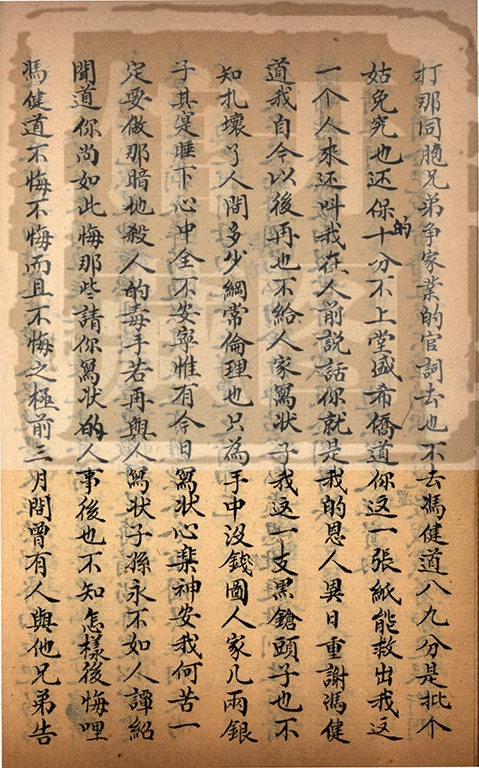 打那同胞兄弟爭家業的官詞去也不去馮健道八九分是批个
姑免究也还保的十分不上堂盛希僑道你这一張紙能救出我这
一个人來还叫我在人前説話你就是我的恩人異日重謝馮健
道我自今以後再也不給人家寫状子我這一支黑鎗頭子也不
知扎壞了人間多少綱常倫理也只為手中没錢圖人家几兩銀
子其寔睡下心中全不安寧惟有今日寫状心樂神安我何苦一
定要做那暗地殺人的毒手若再與人寫状子孫永不如人譚紹
聞道你尚如此悔那些請你寫状的人事後也不知怎樣後悔哩
馮健道不悔不悔而且不悔之極前三月間曾有人與他兄弟告